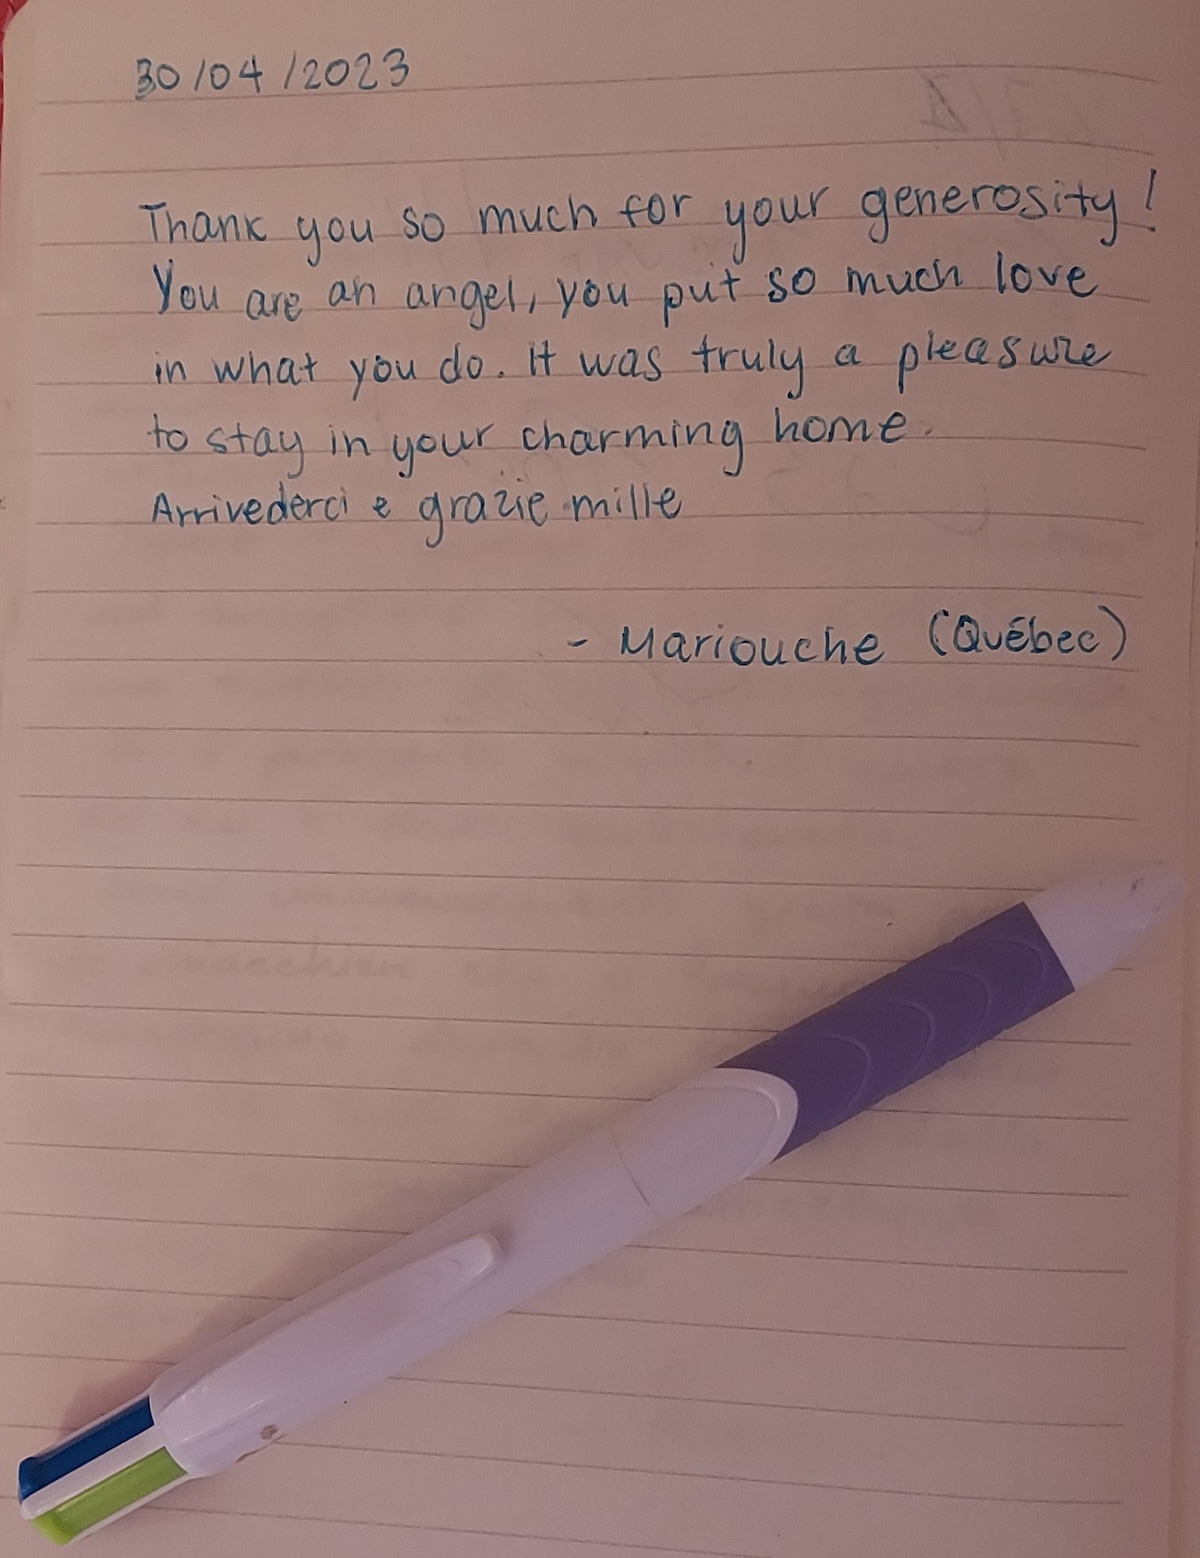 30/04/2023
Thank you so much for your generosity!
You are an angel, you put so much love
in what you do. It was truly a pleasure
to stay in your charming home.
Arrivederci e grazie mille
- Mariouche (Québec)